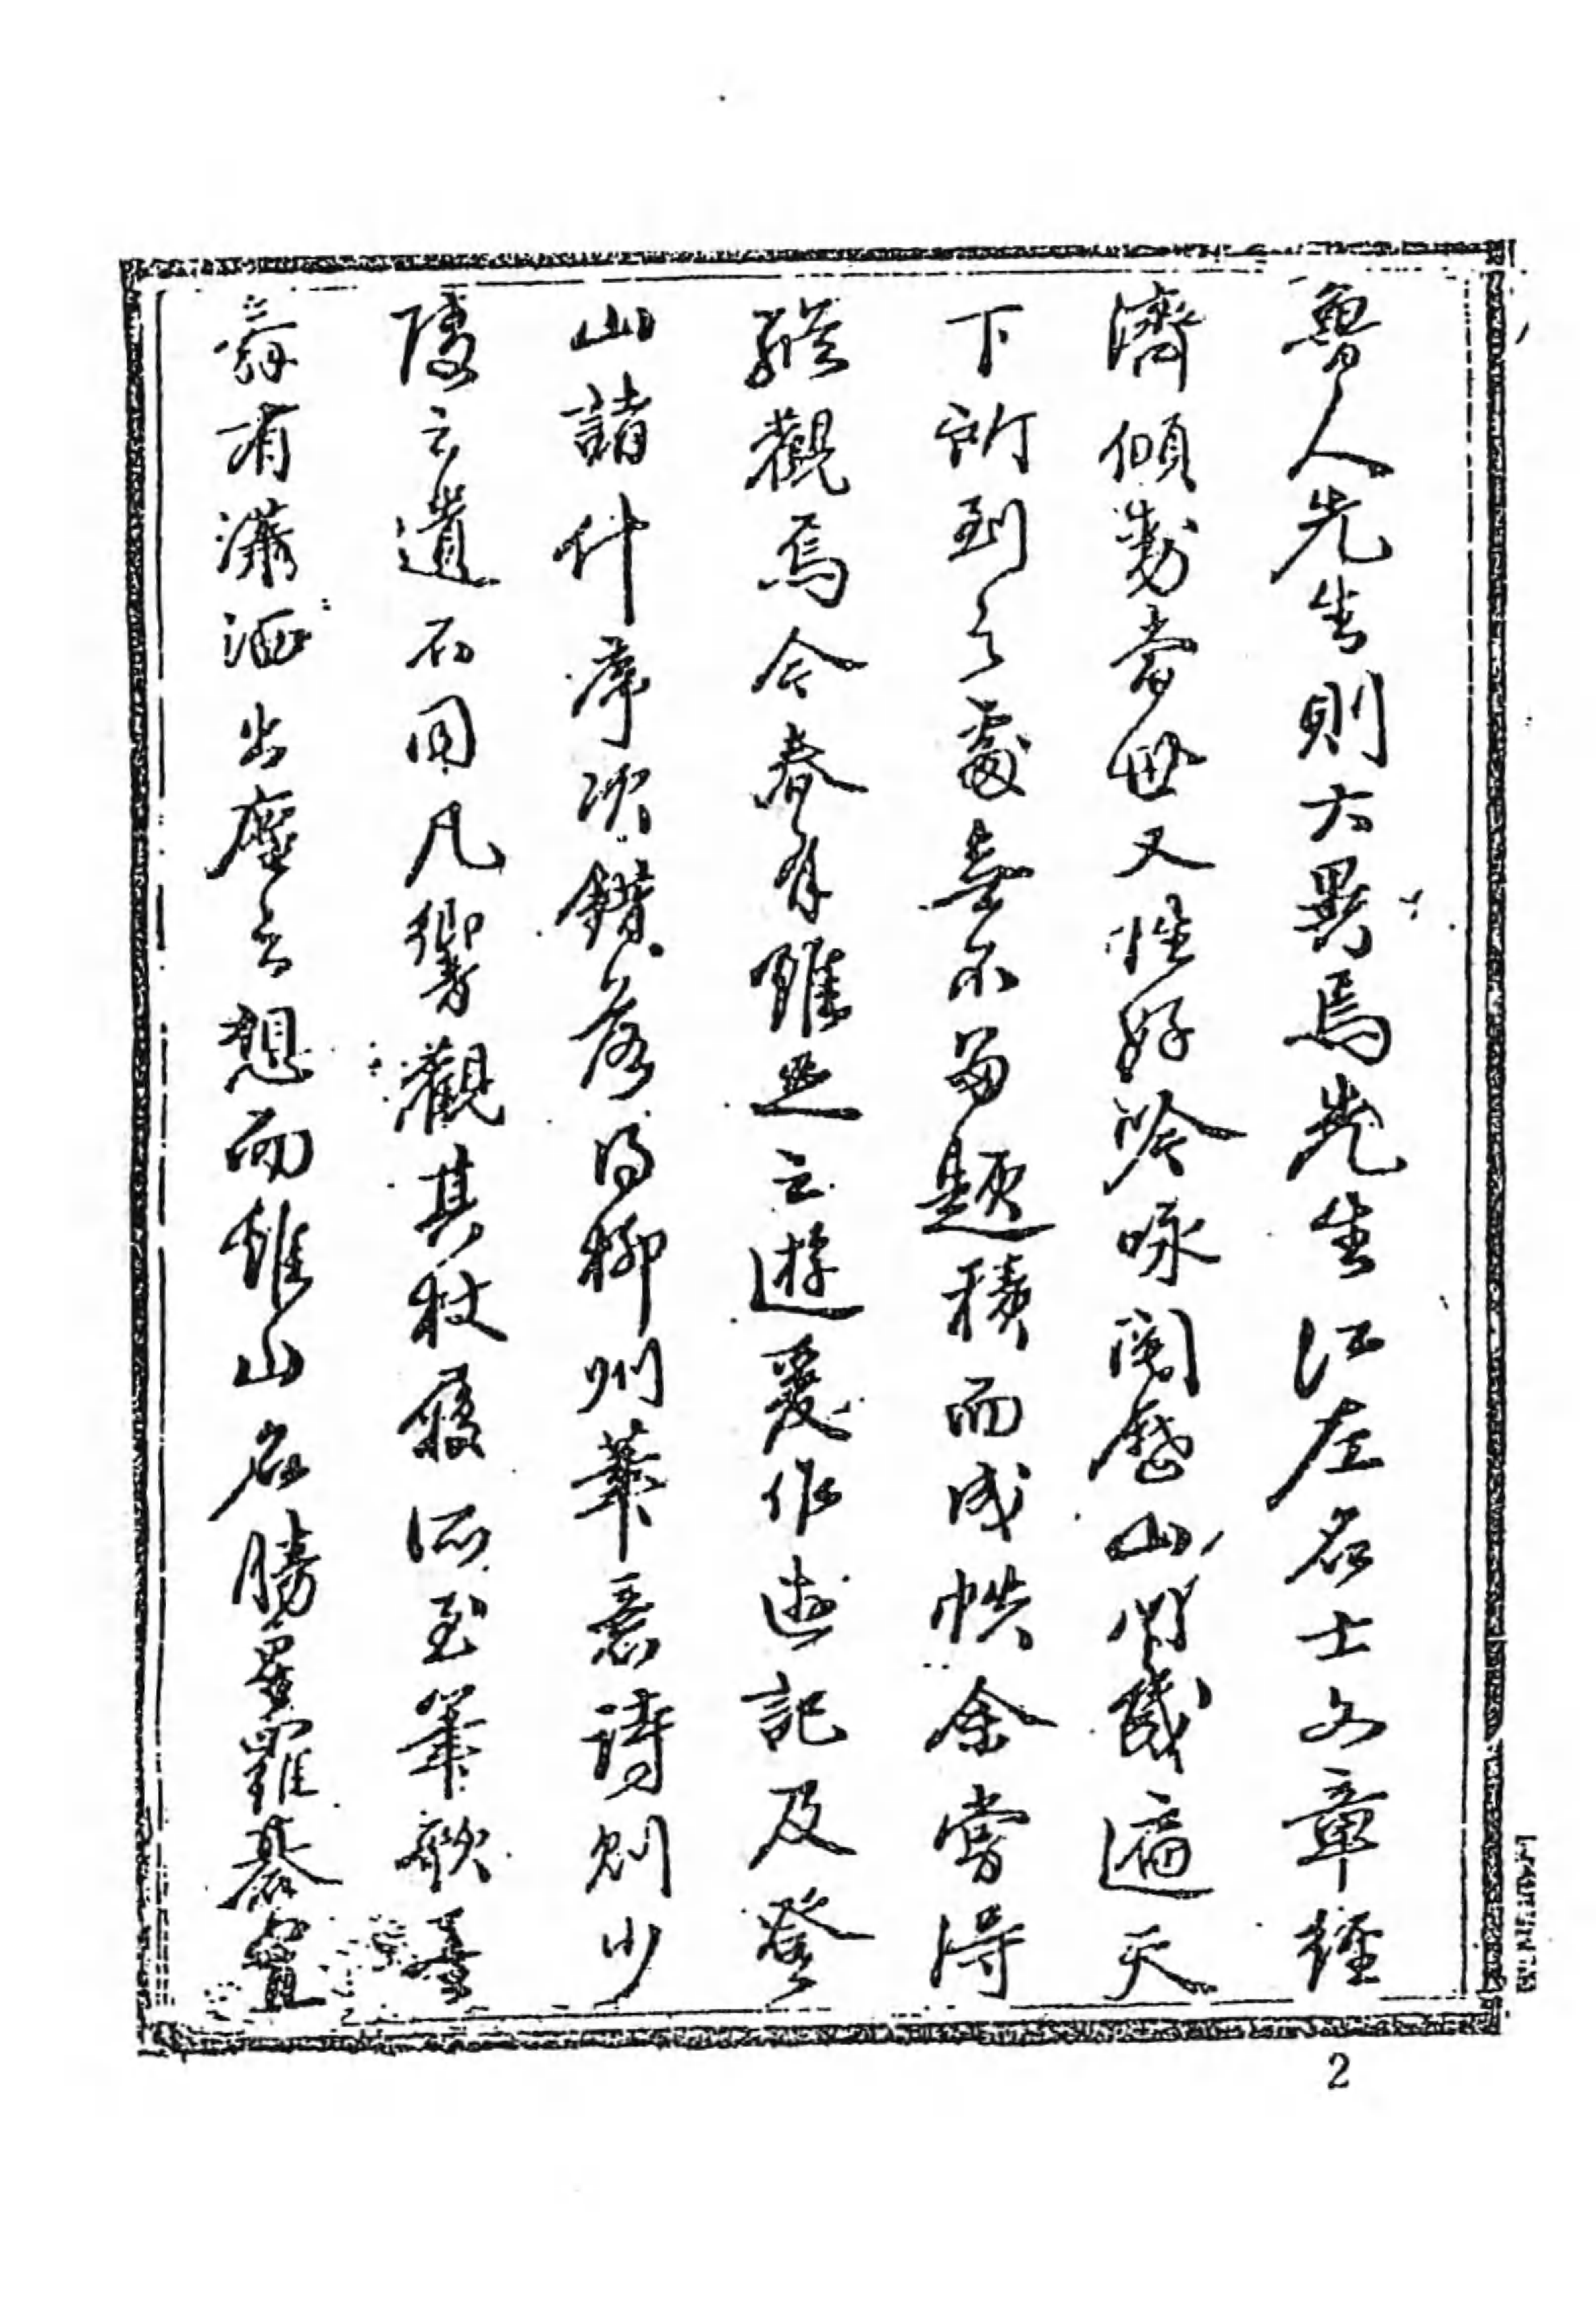 魯人先生則大異焉先生江左名士文章經
濟傾動當世又性好吟咏閱歷山川幾遍天
下所到之處無不留題積而成帙余嘗得
縱觀焉今春有雞足之遊爰作遊記及登
山諸什序次錯落得柳州筆意詩則少
陵之遺不同凡響觀其杖履所至筆歌墨
舞有瀟洒出塵之想而雞山名勝星羅碁置
2